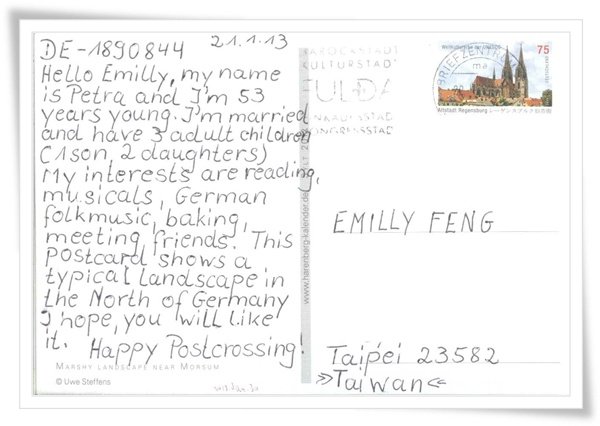 DE-1890844 21.1.13
Hello Emilly, my name
is Petra and I'm 53
years young. I'm married
and have 3 adult children
(1 son, 2 daughters)
My interests are reading,
musicals, German
folkmusic, baking,
meeting friends. This
Postcard shows a
typical landscape in
the North of Germany
I hope, you will like
it. Happy Postcrossing!
MARSHY LANDSCAPE NEAR MORSUM
© Uwe Steffens
www.harenberg-kalender.de
BAROCKSTADT
KULTURSTADT
FULDA
KONGRESSSTADT
BRIEFZENTRUM
Weltkulturerbe der UNESCO 75
Altstadt Regensburg
EMILLY FENG
Taipei 23582
»Taiwan«